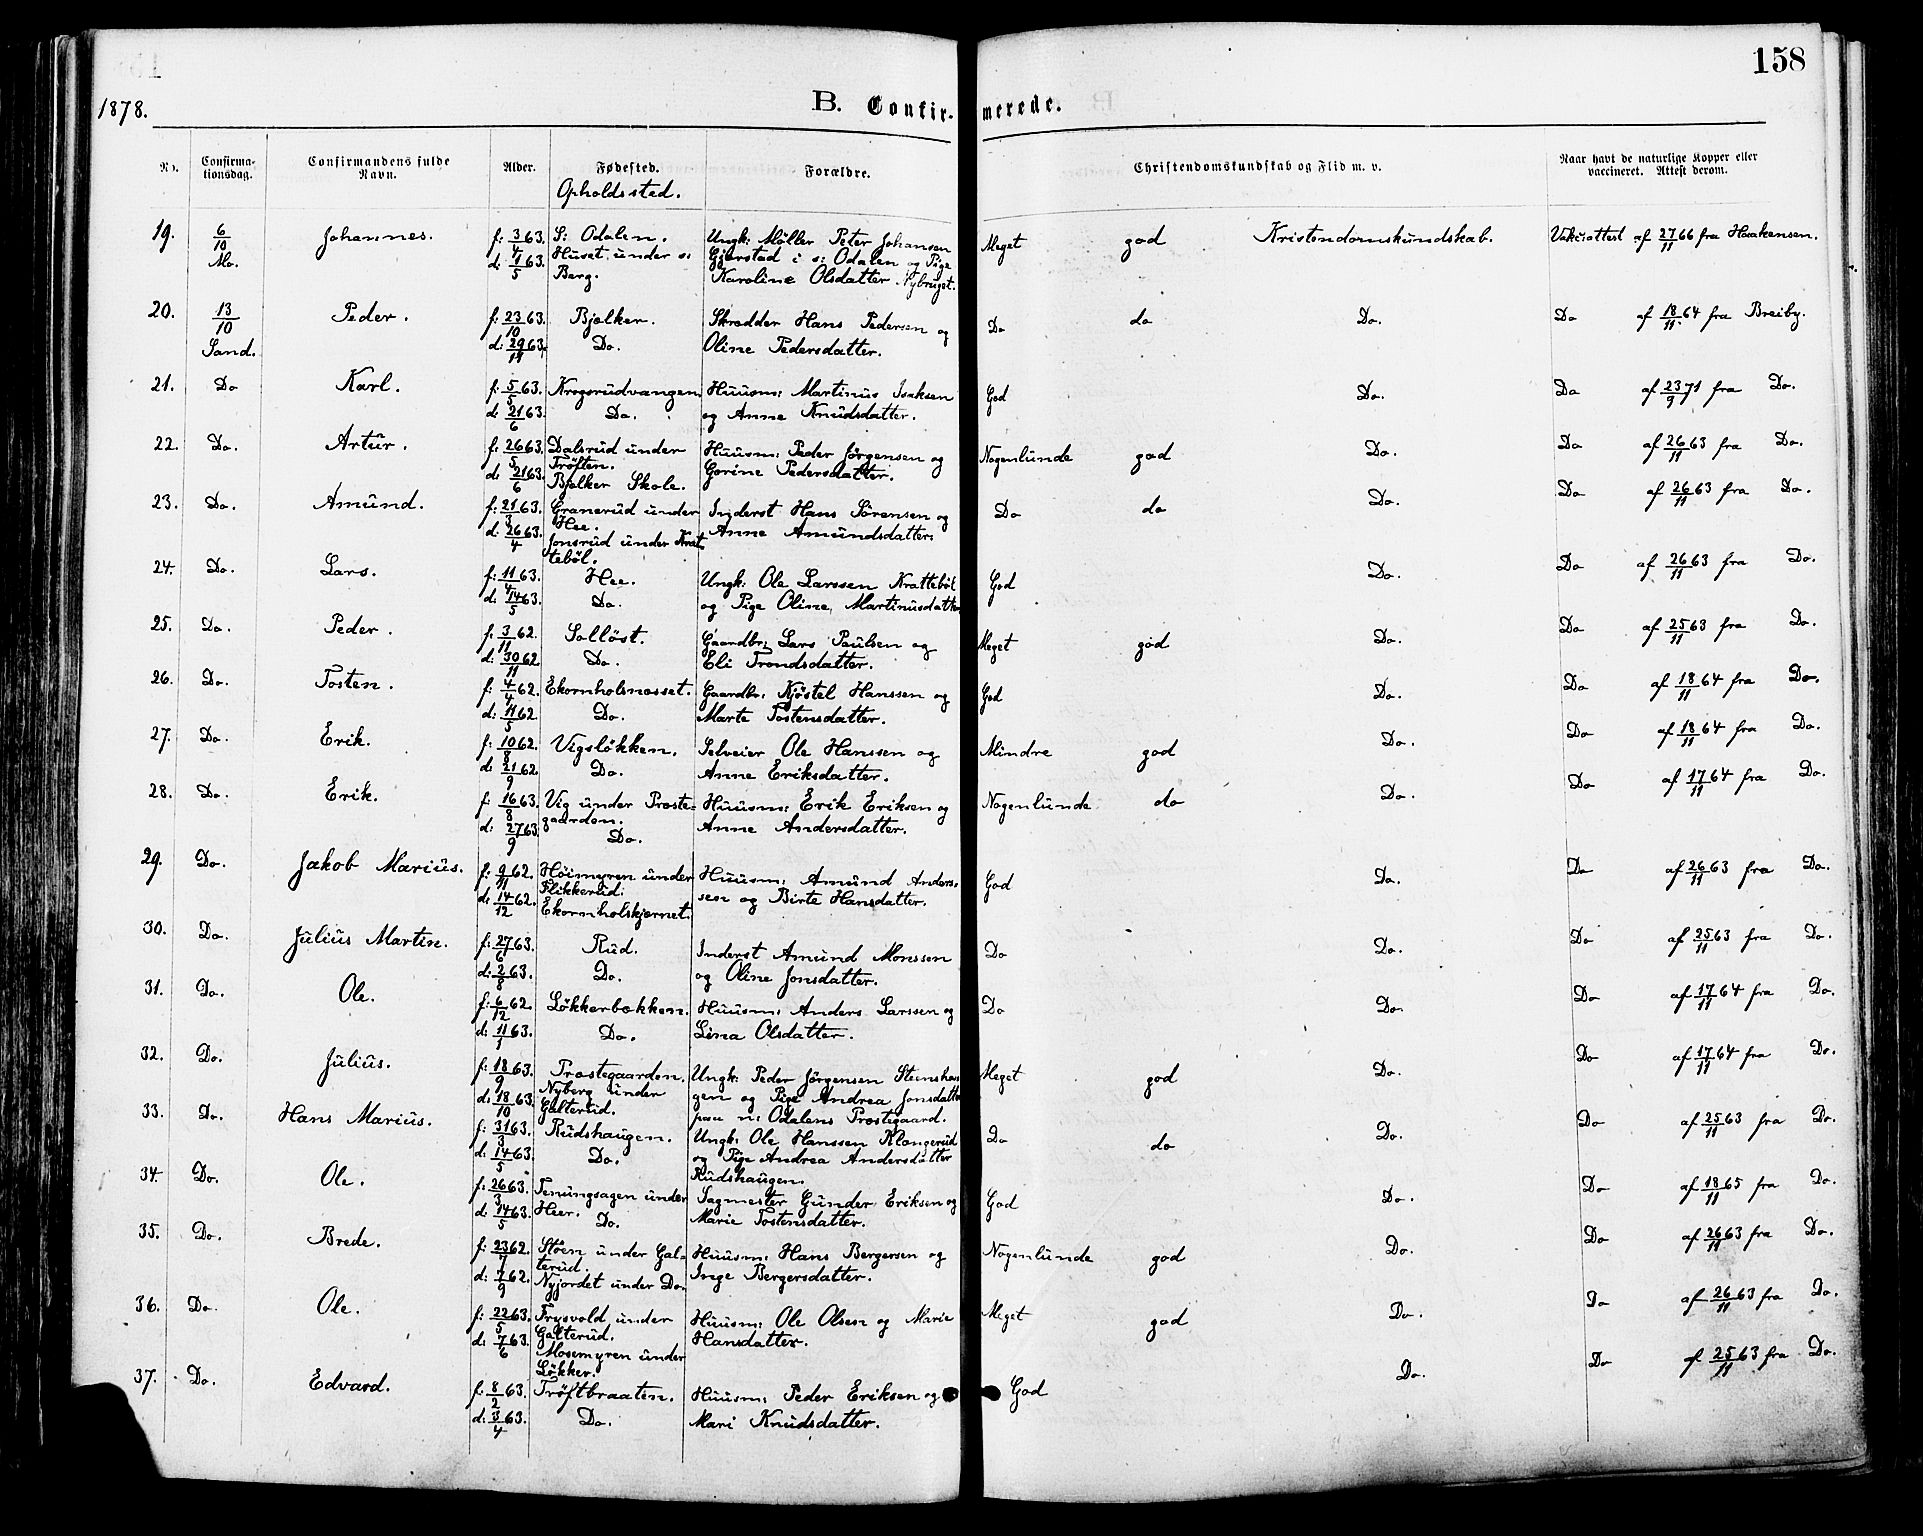 158
1878.
B. Confir- merede.
No.
Confirma-
tionsdag.
Confirmandens fulde
Navn.
Alder.
Fødested.
Opholdssted.
Forældre.
Christendomskundskab og Flid m. v.
Naar havt de naturlige Kopper eller
vaccineret. Attest derom.
19. 6/10 Johannes. f: 3/4 63. S: Odalen. Ungk: Møller Peter Johansen Meget god Kristendomskundskab. Vakc:attest af 27/11 66 fra Haakensen.
Mo. d: 1/5 63. Huset under s: Gjerstad i s: Odalen og Pige
Berg. Karoline Olsdatter Nybruget.
20. 13/10 Peder. f: 23/10 63. Bjælker. Skrædder Hans Pedersen og Do do Do. Do af 18/11 64 fra Breiby.
Sand. d: 29/11 63. Do. Oline Pedersdatter.
21. Do Karl. f: 5/5 63. Krogsrudvangen. Huusm: Martinus Isaksen God Do. Do af 23/9 71 fra Do.
d: 21/6 63. Do. og Anne Knudsdatter.
22. Do. Artur. f: 26/5 63. Dalsrud under Huusm: Peder Jørgensen og Nogenlunde god Do. Do af 26/11 63 fra Do.
Trøften.
d: 21/6 63. Bjælker Skole. Gorine Pedersdatter.
23. Do. Amund. f: 21/3 63. Granerud under Inderst Hans Sørensen og Do do Do. Do af 26/11 63 fra Do.
Hee.
d: 26/4 63. Jonsrud under Krat- Anne Amundsdatter.
tebøl.
24. Do. Lars. f: 11/4 63. Hee. Ungk: Ole Larssen Krattebøl God Do. Do af 26/11 63 fra Do.
d: 14/5 63. Do. og Pige Oline Martinusdatter
25. Do. Peder. f: 3/11 62. Solløst. Gaardbr: Lars Paulsen og Meget god Do. Do af 25/11 63 fra Do.
d: 30/11 62 Do. Eli Trondsdatter.
26. Do. Tosten. f: 4/4 62. Ekornholsnæsset. Gaardbr: Kjøstel Hanssen og God Do. Do af 18/11 64 fra Do.
d: 11/5 62 Do. Marte Tostensdatter.
27. Do. Erik. f: 10/8 62. Vigsløkken. Selveier Ole Hanssen og Mindre god Do. Do af 18/11 64 fra Do.
d: 21/9 62. Do. Anne Eriksdatter.
28. Do. Erik. f: 16/8 63. Vig under Præste- Huusm: Erik Eriksen og Nogenlunde do Do. Do af 17/11 64 fra Do.
gaarden.
d: 27/9 63. Do. Anne Andersdatter.
29. Do. Jakob Marius. f: 9/11 62. Høimyren under Huusm: Amund Anders- God Do. Do af 26/11 63 fra Do.
Flikkerud.
d: 14/12 62. Ekornholskjernet. sen og Birte Hansdatter.
30. Do. Julius Martin. f: 27/6 63. Rud. Inderst Amund Monssen Do Do. Do af 25/11 63 fra Do.
d: 2/8 63. Do. og Oline Jonsdatter.
31. Do. Ole. f: 6/12 62. Løkkerbækken. Huusm: Anders Larssen og Do Do. Do af 17/11 64 fra Do.
d: 11/1 63. Do. Lina Olsdatter.
32. Do. Julius. f: 18/9 63. Præstegaarden. Ungk: Peder Jørgensen Stenshau- Meget god Do. Do af 17/11 64 fra Do.
d: 18/10 63. Nyberg under gen og Pige Andrea Jonsdatter
Galterud. paa n: Odalens Præstegaard.
33. Do. Hans Marius. f: 31/3 63. Rudshaugen. Ungk: Ole Hanssen Klangerud Do do Do. Do af 25/11 63 fra Do.
d: 14/5 63. Do. og Pige Andrea Andersdatter
Rudshaugen.
34. Do. Ole. f: 26/3 63. Tenungsagen under Sagmester Gunder Eriksen og God Do. Do af 18/11 65 fra Do.
d: 14/5 63. Heer. Do. Marie Tostensdatter.
35. Do. Brede. f: 23/7 62. Støen under Gal- Huusm: Hans Bergersen og Nogenlunde god Do. Do af 26/11 63 fra Do.
terud.
d: 7/9 62. Nyjordet under Do. Inge Bergersdatter.
36. Do. Ole. f: 22/5 63. Frysvold under Huusm: Ole Olsen og Marie Meget god Do. Do af 26/11 63 fra Do.
Galterud.
d: 7/6 63. Mosemyren under Hansdatter.
Løkker.
37. Do. Edvard. f: 8/2 63. Trøftbraaten. Huusm: Peder Eriksen og God Do. Do af 25/11 63 fra Do.
d: 3/4 63. Do. Mari Knudsdatter.